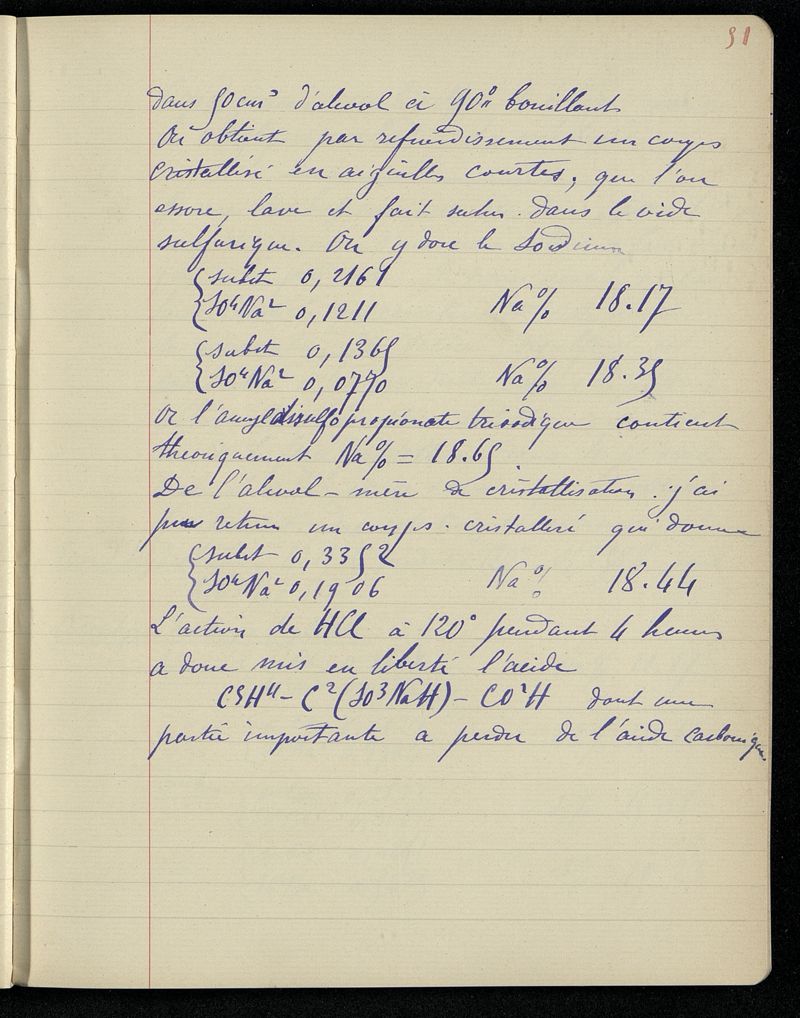 91
dans 50 cm³ d'alcool à 90° bouillant
On obtient par refroidissement un corps
cristallisé en aiguilles courtes, que l'on
essore, lave et fait sécher dans le vide
sulfurique. On y dose le Sodium
{ subst 0,2161
{ SO⁴Na² 0,1211 Na % 18.17
{ subst 0,1365
{ SO⁴Na² 0,0770 Na % 18.35
Or l'amyldisulfopropionate trisodique contient
theoriquement Na % = 18.65.
De l'alcool-mère de cristallisation j'ai
pu retirer un corps cristallisé qui donne
{ subst 0,3352
{ SO⁴Na² 0,1906 Na % 18.44
L'action de HCl à 120° pendant 4 heures
a donc mis en liberté l'acide
C⁵H¹¹ - C²(SO³NaH) - CO²H dont une
partie importante a perdu de l'acide carbonique